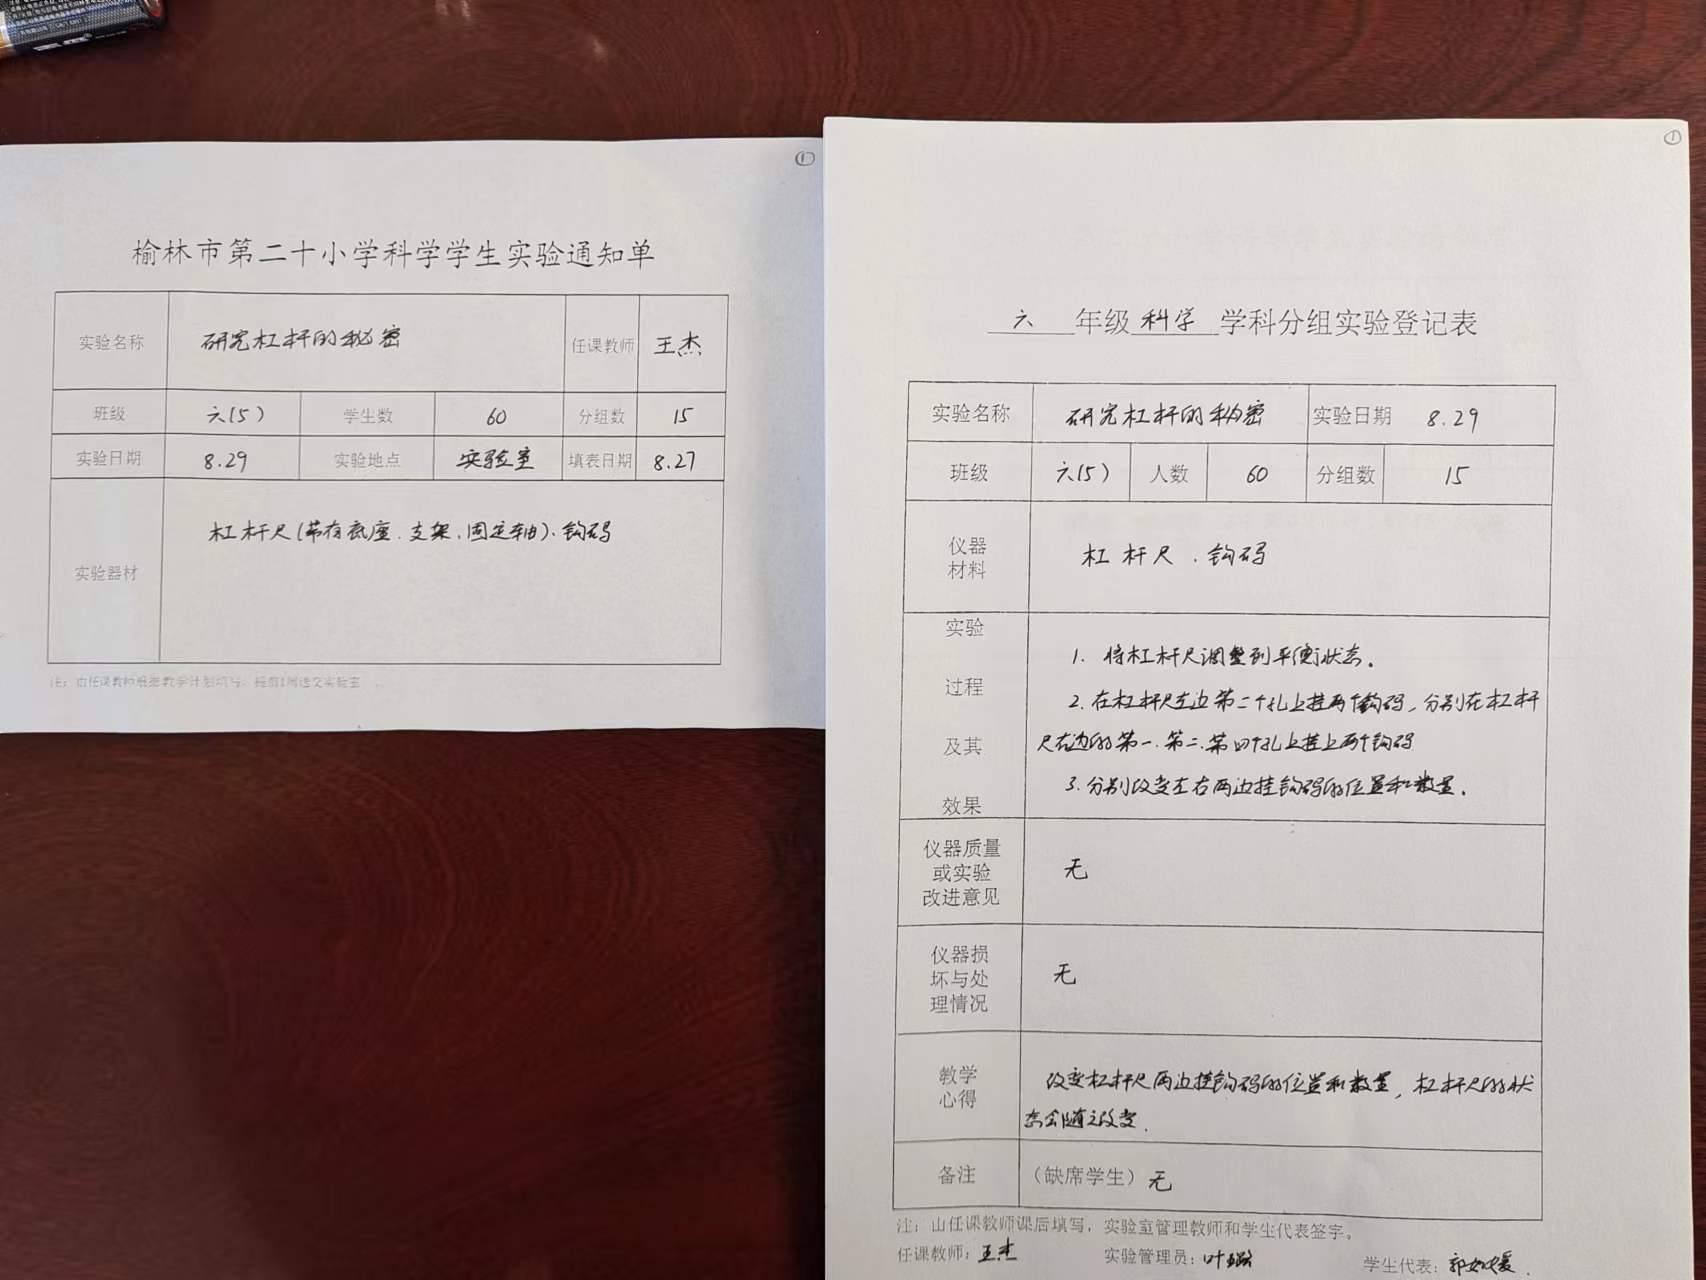 ①
榆林市第二十小学科学学生实验通知单
实验名称 研究杠杆的秘密 任课教师 王杰
班级 六(5) 学生数 60 分组数 15
实验日期 8.29 实验地点 实验室 填表日期 8.27
实验器材 杠杆尺(带有底座、支架、固定轴)、钩码
注：由任课教师根据教学计划填写，提前1周送交实验室
①
六 年级 科学 学科分组实验登记表
实验名称 研究杠杆的秘密 实验日期 8.29
班级 六(5) 人数 60 分组数 15
仪器
材料
杠杆尺、钩码
实验
过程
及其
效果
1. 将杠杆尺调整到平衡状态。
2. 在杠杆尺左边第二个孔上挂两个钩码，分别在杠杆
尺右边的第一、第二、第四个孔上挂上两个钩码
3. 分别改变左右两边挂钩码的位置和数量。
仪器质量
或实验
改进意见
无
仪器损
坏与处
理情况
无
教学
心得
改变杠杆尺两边挂钩码的位置和数量，杠杆尺的状
态会随之改变.
备注 （缺席学生）无
注：由任课教师课后填写，实验室管理教师和学生代表签字。
任课教师：王杰 实验管理员：叶璐 学生代表：郭如媛